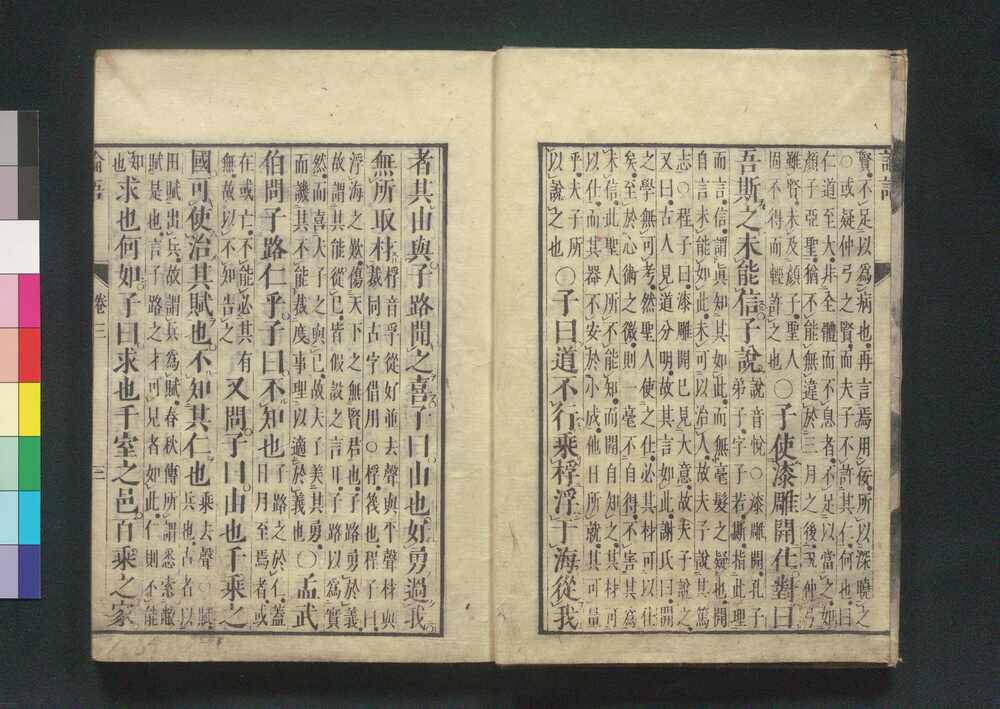 論語
賢。不足以為病也。再言焉用佞。所以深曉之
○或疑仲弓之賢。而夫子不許其仁。何也。曰
仁道至大。非全體而不息者。不足以當之。如
顏子亞聖。猶不能無違於三月之後。況仲弓
雖賢。未及顏子。聖人
固不得而輕許之也
○子使漆雕開仕對曰
吾斯之未能信子說
說音悅○漆雕開。孔子
弟子。字子若。斯。指此理
而言。信。謂眞知其如此。而無毫髮之疑也。開
自言未能如此。未可以治人。故夫子說其篤
志。○程子曰。漆雕開已見大意。故夫子說之。
又曰。古人見道分明。故其言如此。謝氏曰。開
之學無可考。然聖人使之仕。必其材可以仕
矣。至於心術之微。則一毫不自得。不害其爲
未信。此聖人所不能知。而開自知之。其材可
以仕。而其器不安於小成。他日所就。其可量
乎。夫子所
以說之也
○子曰道不行乘桴浮于海從我
者其由與子路聞之喜子曰由也好勇過我
無所取材
桴音孚從好並去聲與平聲材與
裁同古字借用○桴筏也程子曰。
浮海之歎。傷天下之無賢君也。子路勇於義。
故謂其能從己。皆假設之言耳。子路以爲實
然。而喜夫子之與己。故夫子美其勇。
而譏其不能裁度事理以適於義也
○孟武
伯問子路仁乎子曰不知也
子路之於仁。蓋
日月至焉者。或
在或亡。不能必其有
無。故以不知告之
又問子曰由也千乘之
國可使治其賦也不知其仁也
乘去聲○賦
兵也。古者以
田賦出兵。故謂兵爲賦。春秋傳所謂悉索敝
賦是也。言子路之才可見者如此。仁則不能
知
也
求也何如子曰求也千室之邑百乘之家
論語
卷三
三